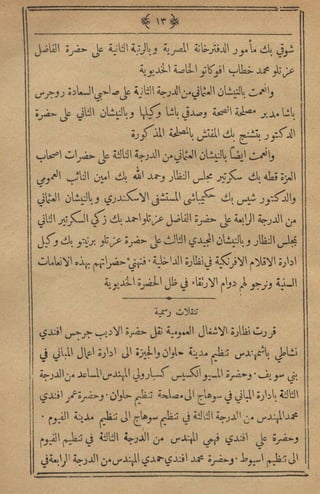 ﴿ ١٣ ﴾
شوقي بك مأمور الدفترخانة المصرية وبالرتبة الثانية على حضرة الفاضل
عزتلو محمد خطاب افوكاتو الخاصة الخديوية
وانعمت بالنيشان العثماني من الدرجة الثانية على صاحبي السعادة روجرس
باشا مدير مصلحة الصحة وصدقي باشا وكيلها وبالنيشان الثاني على حضرة
الدكتور بتشنج بك المفتش بالمصلحة المذكورة
وانعمت ايضاً بالنيشان العثماني من الدرجة الثالثة على حضرات اصحاب
العزة قطه بك سكرتير مجلس النظار وحمد الله بك امين النائب العمومي
والدكتور شيس بك حكيمباشي المستشفى الاسكندري وبالنيشان العثماني
من الدرجة الرابعة على حضرة الفاضل عزتلو احمد بك زكي السكرتير الثاني
لمجلس النظار وبالنيشان المجيدي الثالث على حضرة عزتلو برنيتو بك وكيل
ادارة الاقلام الافرنكية في نظارة الداخلية . فنهنئ حضراتهم بهذه الانعامات
السنية ونرجو لهم دوام الارتقاء في ظل الحضرة الخديوية
تنقلات رسمية
قررت نظارة الاشغال العمومية نقل حضرة الاديب جرجس افندي
نشاطي باشمهندس تنظيم مدينة حلوان والجيزة الى ادارة اعمال المباني في
بني سويف . وحضرة المسيو الكسيس كسباروني المهندس المساعد من الدرجة
الثالثة بادارة المباني في سوهاج الى مصلحة تنظيم حلوان . وحضرة عمر افندي
محمد المهندس من الدرجة الثالثة في تنظيم سوهاج الى تنظيم مدينة الفيوم .
وحضرة علي افندي فهمي المهندس من الدرجة الثالثة في تنظيم الفيوم
الى تنظيم اسيوط . وحضرة محمد افندي حمدي المهندس من الدرجة الرابعة في